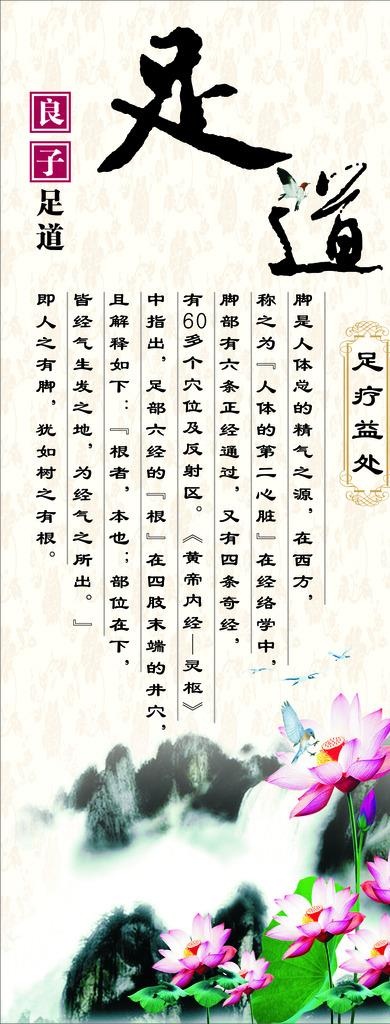 足道
良子足道
足疗益处
脚是人体总的精气之源，在西方，
称之为『人体的第二心脏』在经络学中，
脚部有六条正经通过，又有四条奇经，
有60多个穴位及反射区。《黄帝内经—灵枢》
中指出，足部六经的『根』在四肢末端的井穴，
且解释如下：『根者，本也；部位在下，
皆经气生发之地，为经气之所出。』
即人之有脚，犹如树之有根。